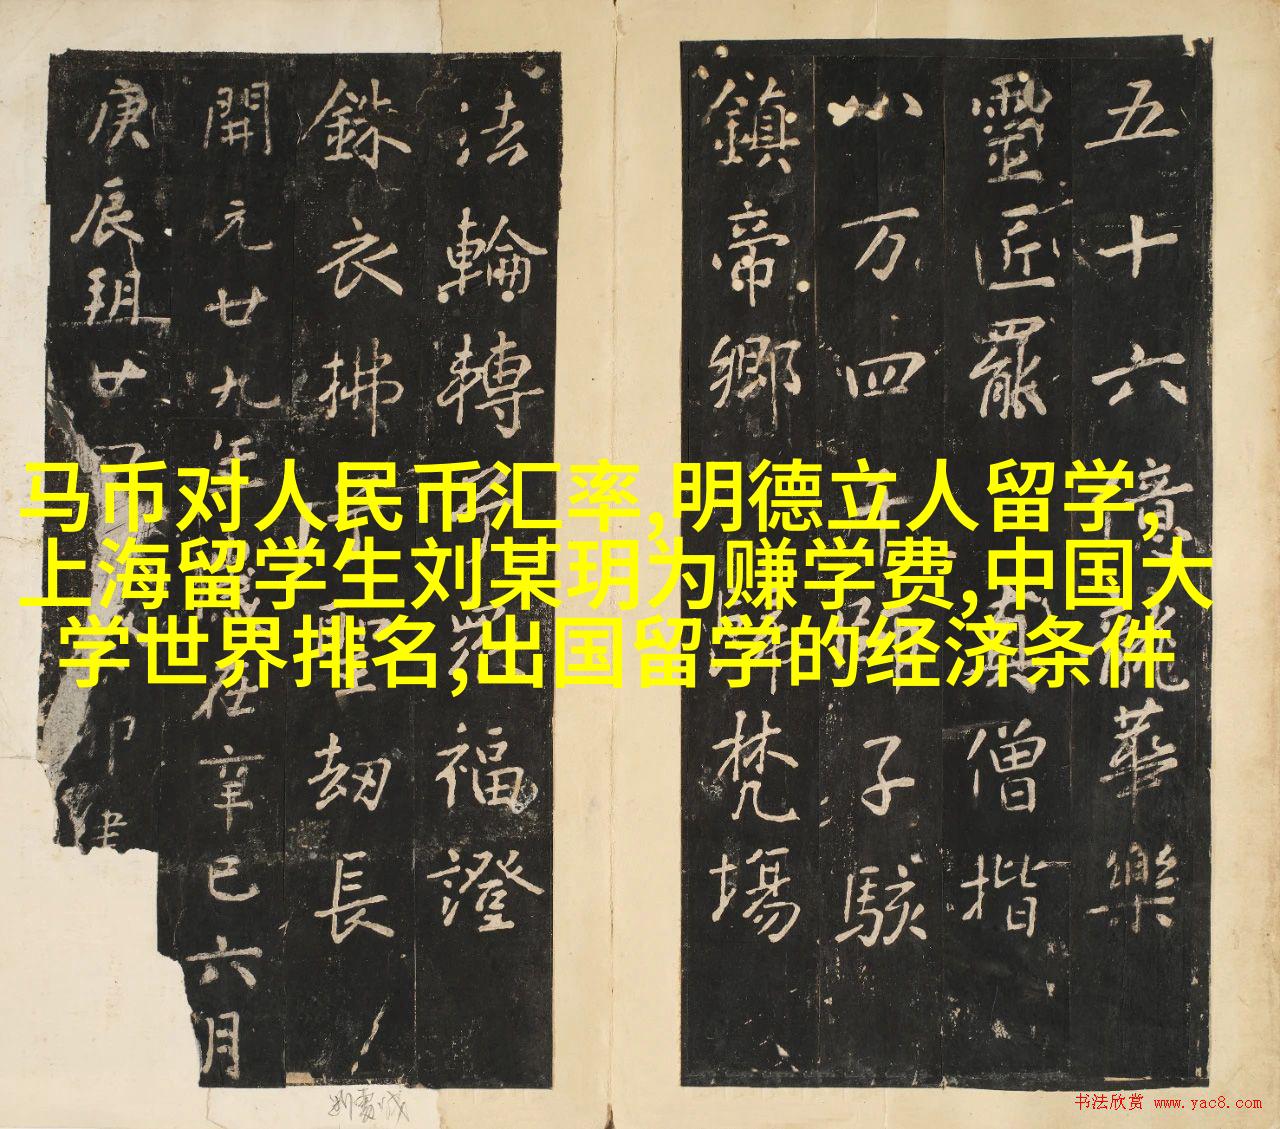 马币对人民币汇率,明德立人留学,
上海留学生刘某玥为赚学费,中国大
学世界排名,出国留学的经济条件
五十六億龍華樂
靈匠罷僧揩
八万四千子駭
鎮帝鄉梵場
法輪轉福證
銖衣拂劫長
開元廿九年歲在辛巳六月
庚辰玥廿
书法欣赏 www.yac8.com